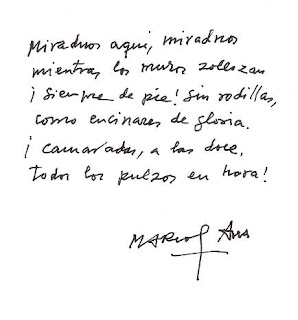 Miradnos aquí, miradnos
mientras los muros
¡Siempre de pie! Sin rodillas,
como encinares de gloria.
¡Camaradas, a las doce,
todos los pulsos en hora!
Marcos Ana